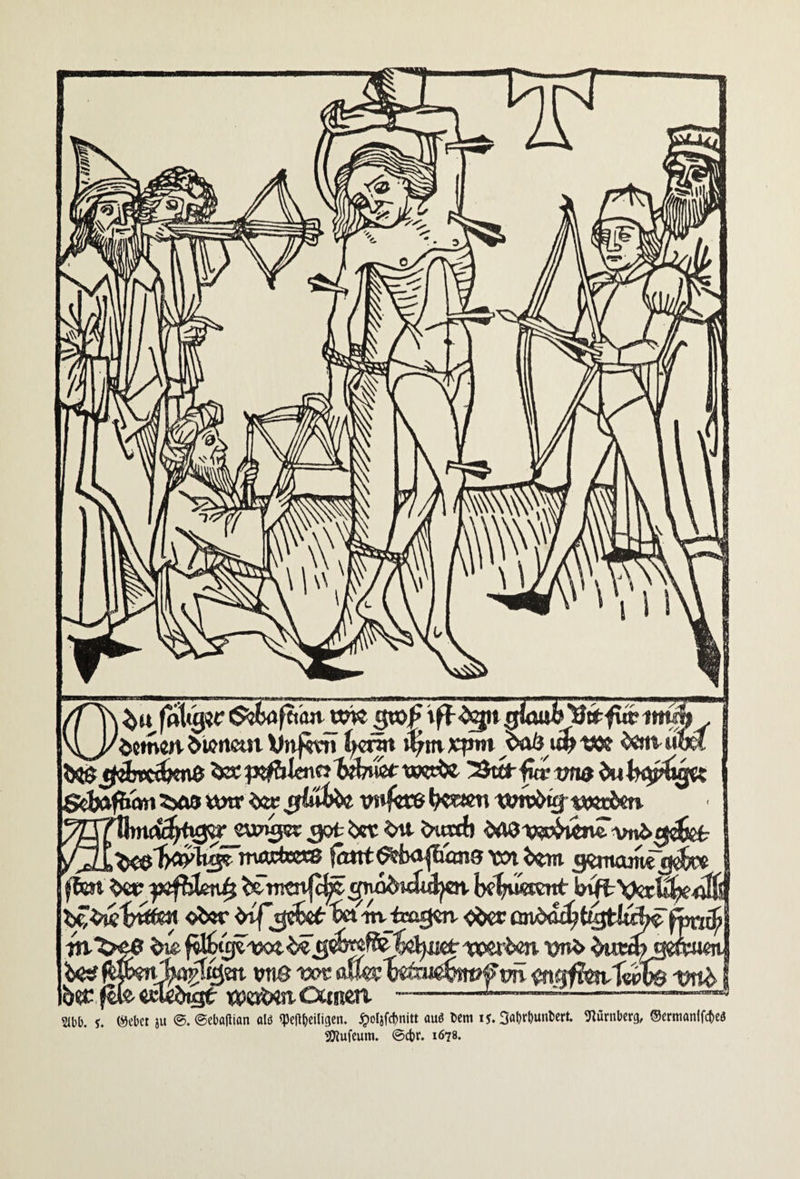 O du säliger Sebastian wie groß ist dein glaub Bitt für mich
deinen dienern Vnsern herrn ihm xpm das ich vor dem übel
des gebrechens der pestilencz behüet werde Bitt für vns du hayliger
Sebastian das wir der glübde vnsers herren wirdig werden
Allmächtiger ewiger got der du durch das verdienē vnd gebet
des hayligē martrers sant Sebastians von dem gemainē gebre
sten der pestilencz dē menschē gnädiclichen behüetent bist Verlihe allē
dē die bitten oder dis gebet bei in tragen oder andächtigklichē sprich
in Des die selbige vor dē gebrestē behüet werden vnd durch getruen
des selben hayligen vns vor aller betruebnuß vn engsten leibs vnd
der sele erledigt werden Amen
Abb. 5. Gebet zu S. Sebastian als Pestheiligen. Holzschnitt aus dem 15. Jahrhundert. Nürnberg, Germanisches
Museum. Schr. 1678.